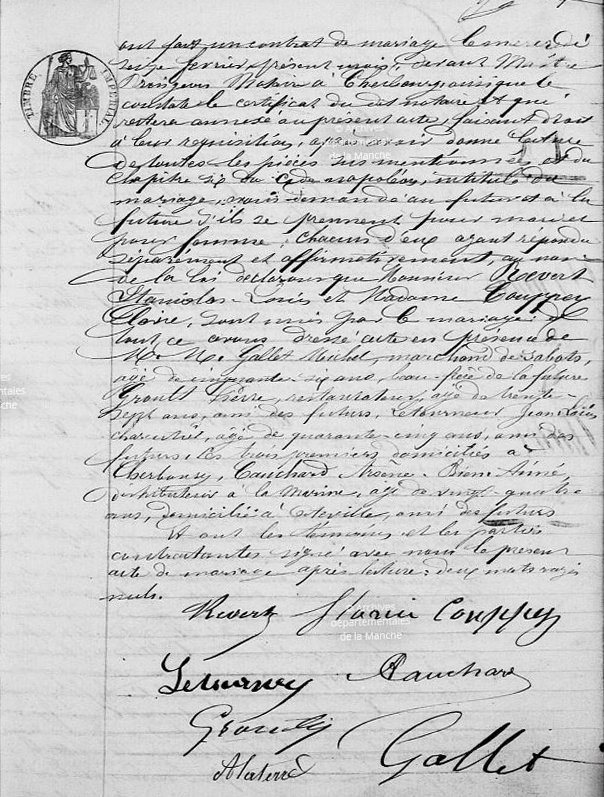 TIMBRE IMPERIAL
ont fait un contrat de mariage le mercredi
seize février présent mois, devant Maître
Notaire à Cherbourg, ainsi que le
constate le certificat du dit notaire et qui
restera annexé au présent acte, faisant droit
à leur réquisition, après avoir donné lecture
de toutes les pièces susmentionnées, et du
chapitre six du Code Napoléon, intitulé du
mariage, avons demandé au futur et à la
future s'ils se prennent pour mari et
pour femme : chacun d'eux ayant répondu
séparément et affirmativement, au nom
de la loi déclarons que Monsieur Revert
Stanislas Louis et Madame Couppey
Claire, sont unis par le mariage. De
tout ce avons dressé acte en présence de
M. M. Gallet Michel, marchand de sabots,
âgé de cinquante-six ans, beau-frère de la future
Groult Pierre, restaurateur, âgé de trente-
sept ans, ami des futurs, Letourneur Jean Louis
charcutier, âgé de quarante-cinq ans, ami des
futurs, les trois premiers domiciliés à
Cherbourg, Cauchard Arsène Bien-Aimé
à la Marine, âgé de vingt-quatre
ans, domicilié à ami des futurs
Et ont les témoins et les parties
contractantes signé avec nous le présent
acte de mariage après lecture : deux mots rayés
nuls.
Revert Couppey
Cauchard
Gallet
© Archives
départementales
de la Manche
Archives
départementales
de la Manche